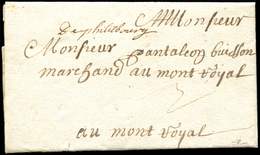 A Monsieur
De philisbourg
Monsieur pantaleon buisson
marchand au mont Royal
au mont Royal